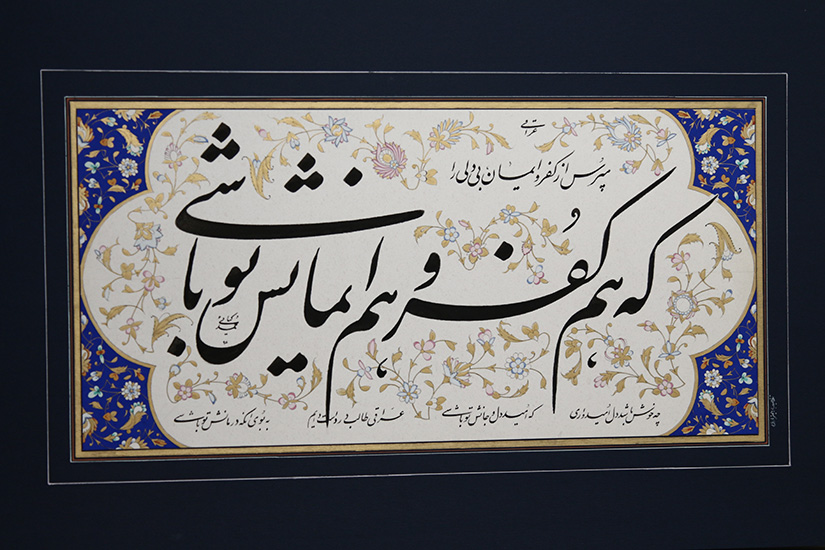 عراقی
مپرس از کفر و ایمان بی دلی را
که هم کفر و هم ایمانش تو باشی
چه خوش باشد دل امیدواری که امید دل و جانش تو باشی عراقی طالب درد است دایم به بوی آنکه درمانش تو باشی